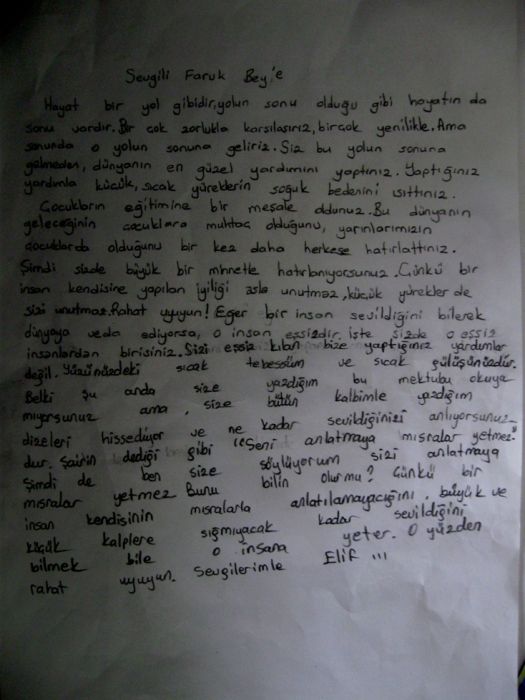 Sevgili Faruk Bey'e
Hayat bir yol gibidir, yolun sonu olduğu gibi hayatın da
sonu vardır. Bir çok zorlukla karşılaşırız, birçok yenilikle. Ama
sonunda o yolun sonuna geliriz. Siz bu yolun sonuna
gelmeden, dünyanın en güzel yardımını yaptınız. Yaptığınız
yardımla küçük, sıcak yüreklerin soğuk bedenini ısıttınız.
Çocukların eğitimine bir meşale oldunuz. Bu dünyanın
geleceğinin çocuklara muhtaç olduğunu, yarınlarımızın
çocuklarda olduğunu bir kez daha herkese hatırlattınız.
Şimdi sizde büyük bir minnetle hatırlanıyorsunuz. Çünkü bir
insan kendisine yapılan iyiliği asla unutmaz, küçük yürekler de
sizi unutmaz. Rahat uyuyun! Eğer bir insan sevildiğini bilerek
dünyaya veda ediyorsa, o insan eşsizdir, işte sizde o eşsiz
insanlardan birisiniz. Sizi eşsiz kılan bize yaptığınız yardımlar
değil. Yüzünüzdeki sıcak tebessüm ve sıcak gülüşünüzdür.
Belki şu anda size yazdığım bu mektubu okuya
mıyorsunuz ama, size bütün kalbimle yazdığım
dizeleri hissediyor ve ne kadar sevildiğinizi anlıyorsunuz
dur. Şairin dediği gibi "Seni anlatmaya mısralar yetmez."
Şimdi de ben size söylüyorum sizi anlatmaya
mısralar yetmez Bunu bilin olur mu? Çünkü bir
insan kendisinin mısralarla anlatılamayacağını, büyük ve
küçük kalplere sığmıyacak kadar sevildiğini
bilmek bile o insana yeter. O yüzden
rahat uyuyun. Sevgilerimle Elif ...